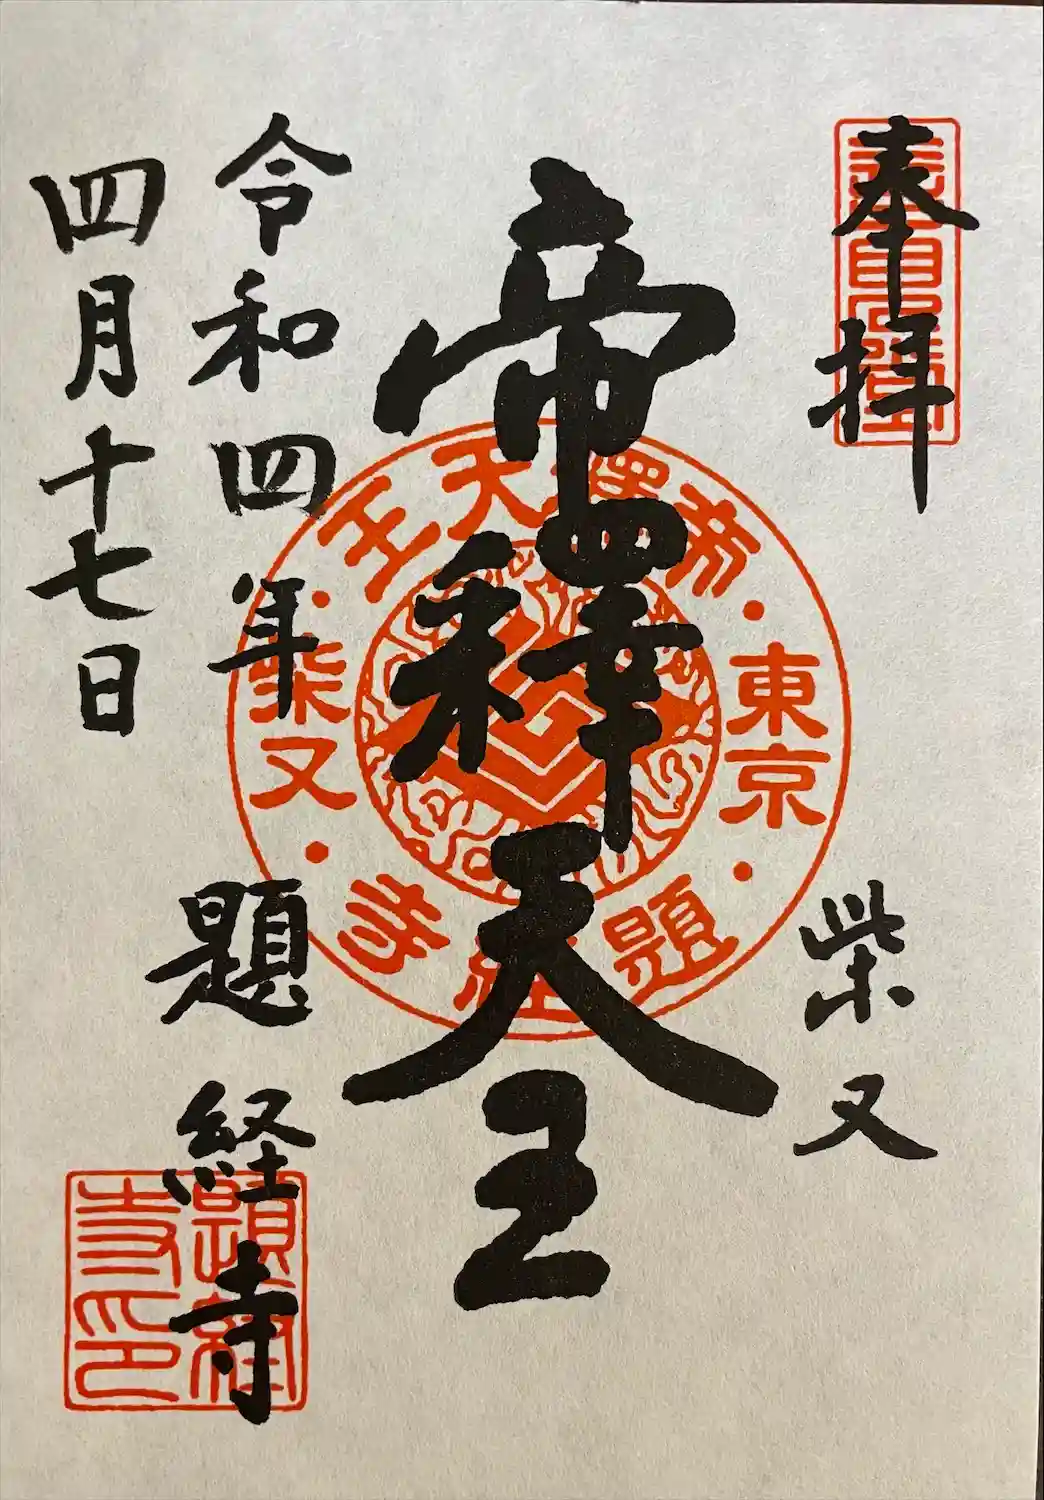 奉拝
柴又
帝釋天王
令和四年
四月十七日
題経寺
帝釋天王
東京
柴又
題経寺
題経寺印